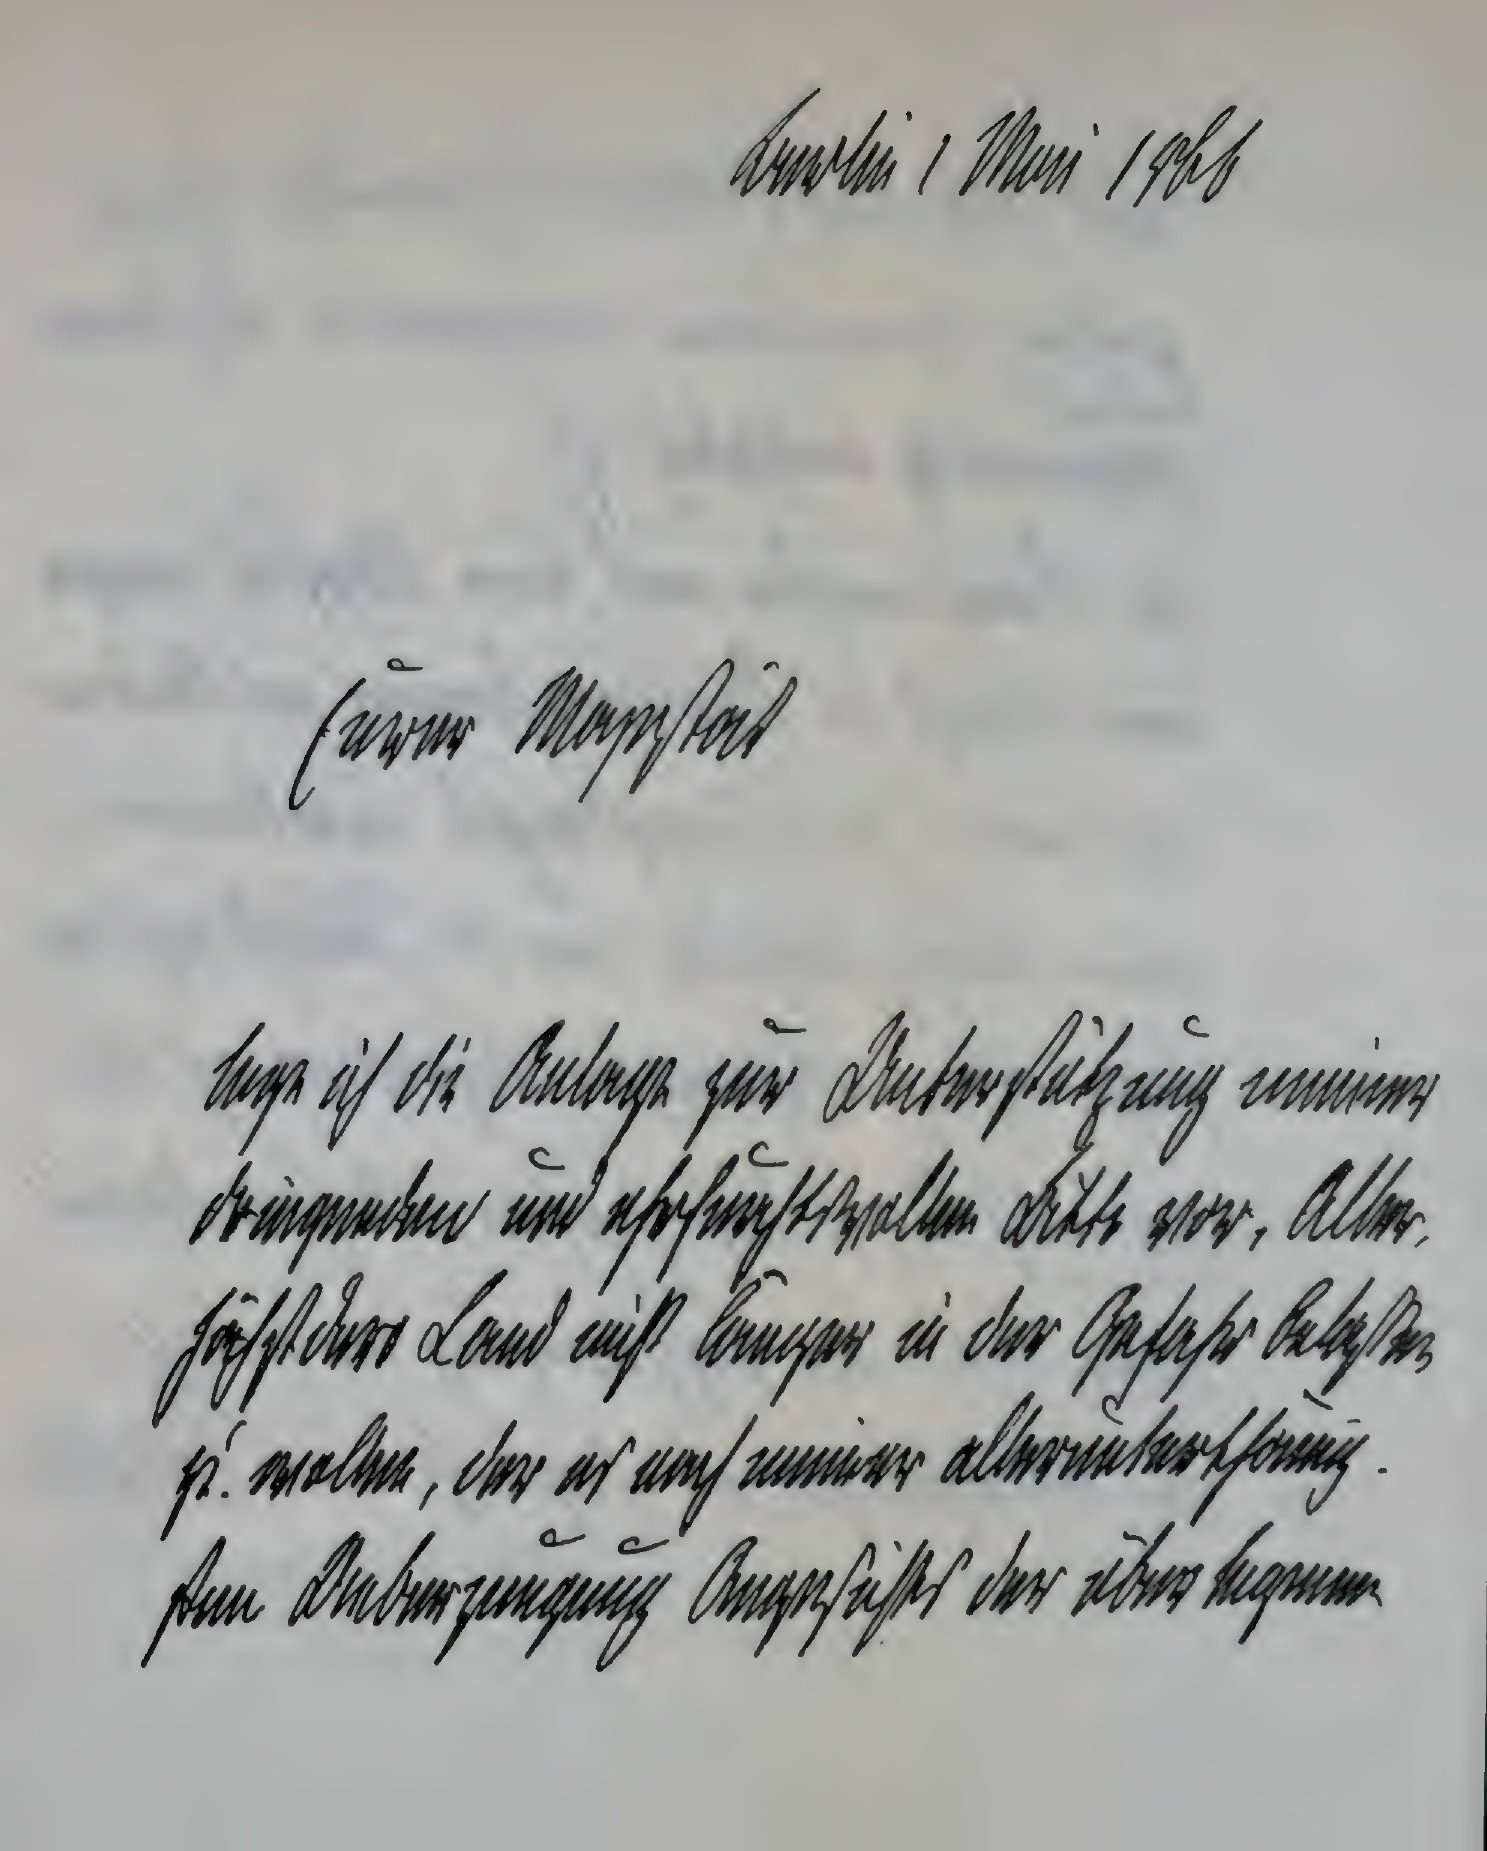 Berlin 1 Mai 1866
Eurer Majestät
lege ich die Anlage zur Unterstützung meiner
dringenden und ehrfurchtsvollen Bitte vor, Aller-
höchstdero Land nicht länger in der Gefahr belaßen
zu wollen, der es nach meiner allerunterthänig-
sten Ueberzeugung Angesichts der überlegenen